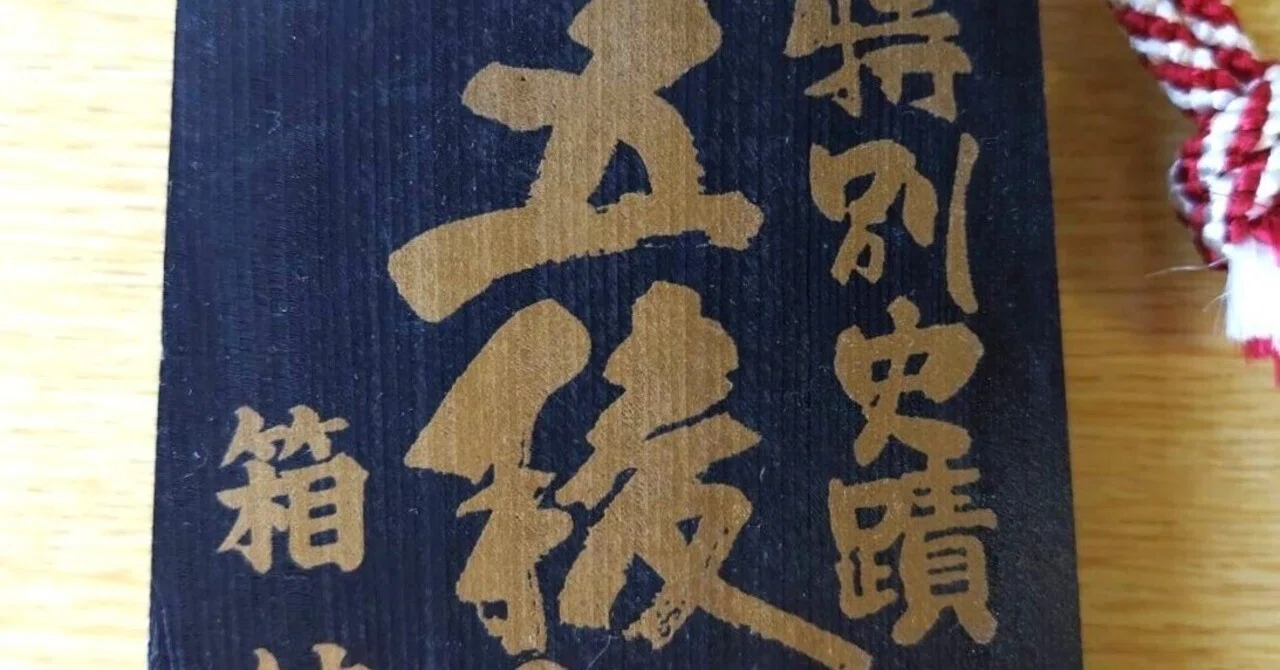 特別史蹟
五稜
箱